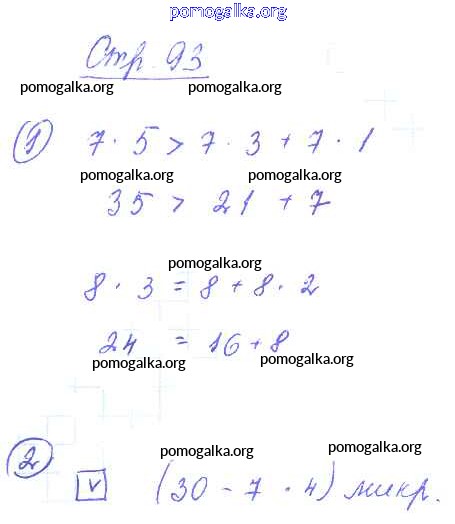 pomogalka.org
Стр. 93
pomogalka.org pomogalka.org
① 7 · 5 > 7 · 3 + 7 · 1
pomogalka.org pomogalka.org
35 > 21 + 7
pomogalka.org
8 · 3 = 8 + 8 · 2
24 = 16 + 8
pomogalka.org pomogalka.org
pomogalka.org pomogalka.org
② v (30 - 7 · 4) микр.